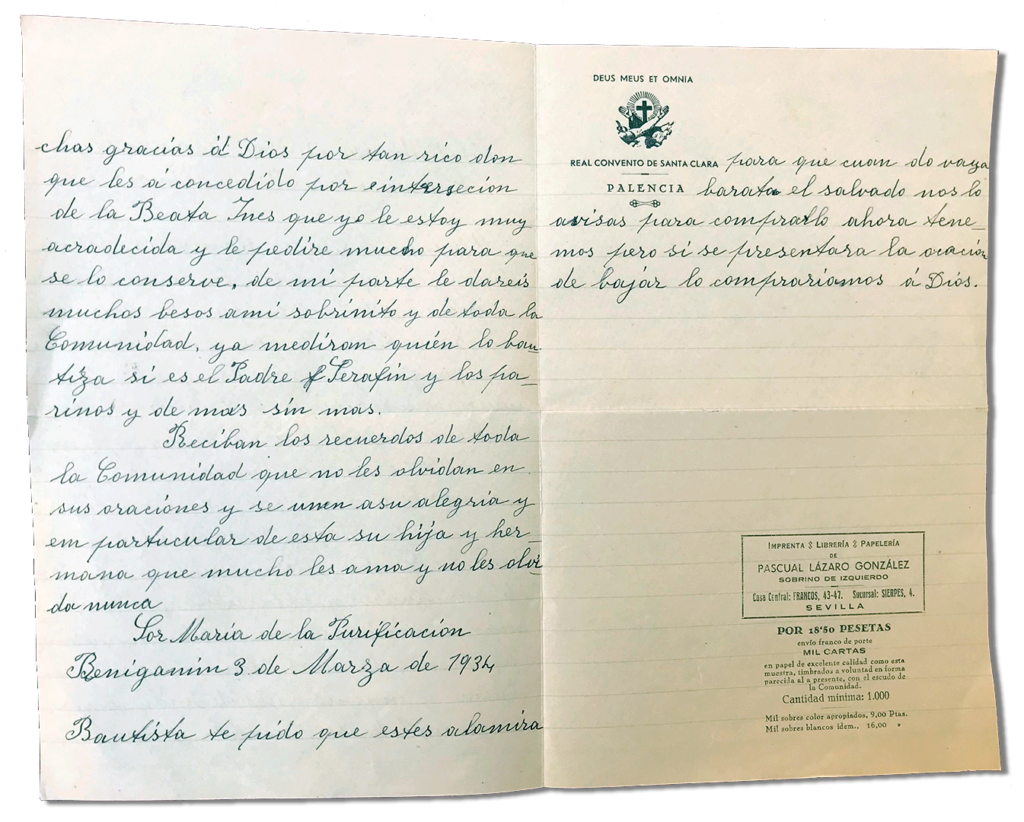 chas gracias á Dios por tan rico don
que les á concedido por eintersecion
de la Beata Ines que yo le estoy muy
acradecida y le pedire mucho para que
se lo conserve, de mi parte le dareis
muchos besos ami sobrinito y de toda la
Comunidad, ya mediran quién lo bau_
tiza si es el Padre Serafin y los pa_
rinos y de mas sin mas.
Reciban los recuerdos de toda
la Comunidad que no les olvidan en
sus oraciones y se unen asu alegria y
em partucular de esta su hija y her_
mana que mucho les ama y no les olvi_
da nunca
Sor Maria de la Purificación
Benigamin 3 de Marza de 1934
Bautista te pido que estes alamira
DEUS MEUS ET OMNIA
REAL CONVENTO DE SANTA CLARA para que cuan do vaya
PALENCIA barata el salvado nos lo
avisas para comprarllo ahora tene_
mos pero si se presentara la ocacion
de bajar lo comprariamos á Dios.
IMPRENTA $ LIBRERÍA $ PAPELERÍA
DE
PASCUAL LÁZARO GONZÁLEZ
SOBRINO DE IZQUIERDO
Casa Central: FRANCOS, 43-47. Sucursal: SIERPES, 4.
SEVILLA
POR 18'50 PESETAS
envío franco de porte
MIL CARTAS
en papel de excelente calidad como esta
muestra, timbrados a voluntad en forma
parecida al a presente, con el escudo de
la Comunidad.
Cantidad mínima: 1.000
Mil sobres color apropiados, 9,00 Ptas.
Mil sobres blancos idem., 16,00 »